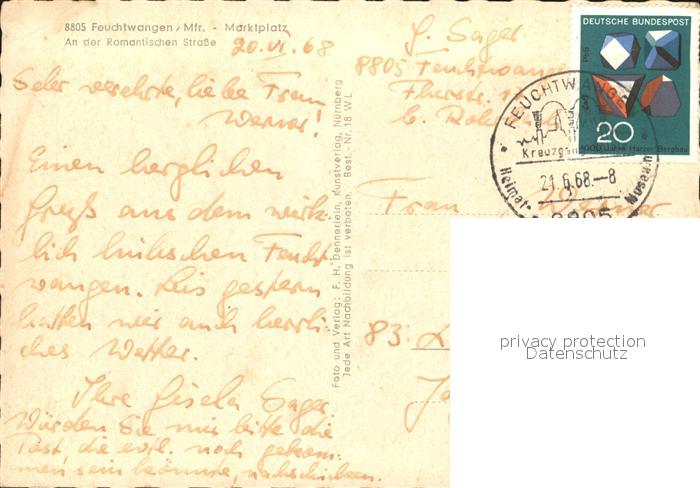 8805 Feuchtwangen/Mfr. - Marktplatz
An der Romantischen Straße
20.VI.68
Sehr verehrte, liebe Frau
Werner!
Einen herzlichen
Gruß aus dem wirk-
lich hübschen Feucht
wangen. Bis gestern
hatten wir auch herrli-
ches Wetter.
Ihre Gisela Sager
Würden Sie mir bitte die
Post, die evtl. noch gekom-
men sein könnte, nachschicken.
Foto und Verlag: F. H. Dennerlein, Kunstverlag, Nürnberg
Jede Art Nachbildung ist verboten. Best.-Nr. 18 W/L
G. Sager
8805 Feuchtwangen
b.
DEUTSCHE BUNDESPOST
20
1000 Jahre Harzer Bergbau
FEUCHTWANGE
Kreuzga
21.6.68.-8
Heimat- Museum
8805
Frau Werner
83
privacy protection
Datenschutz